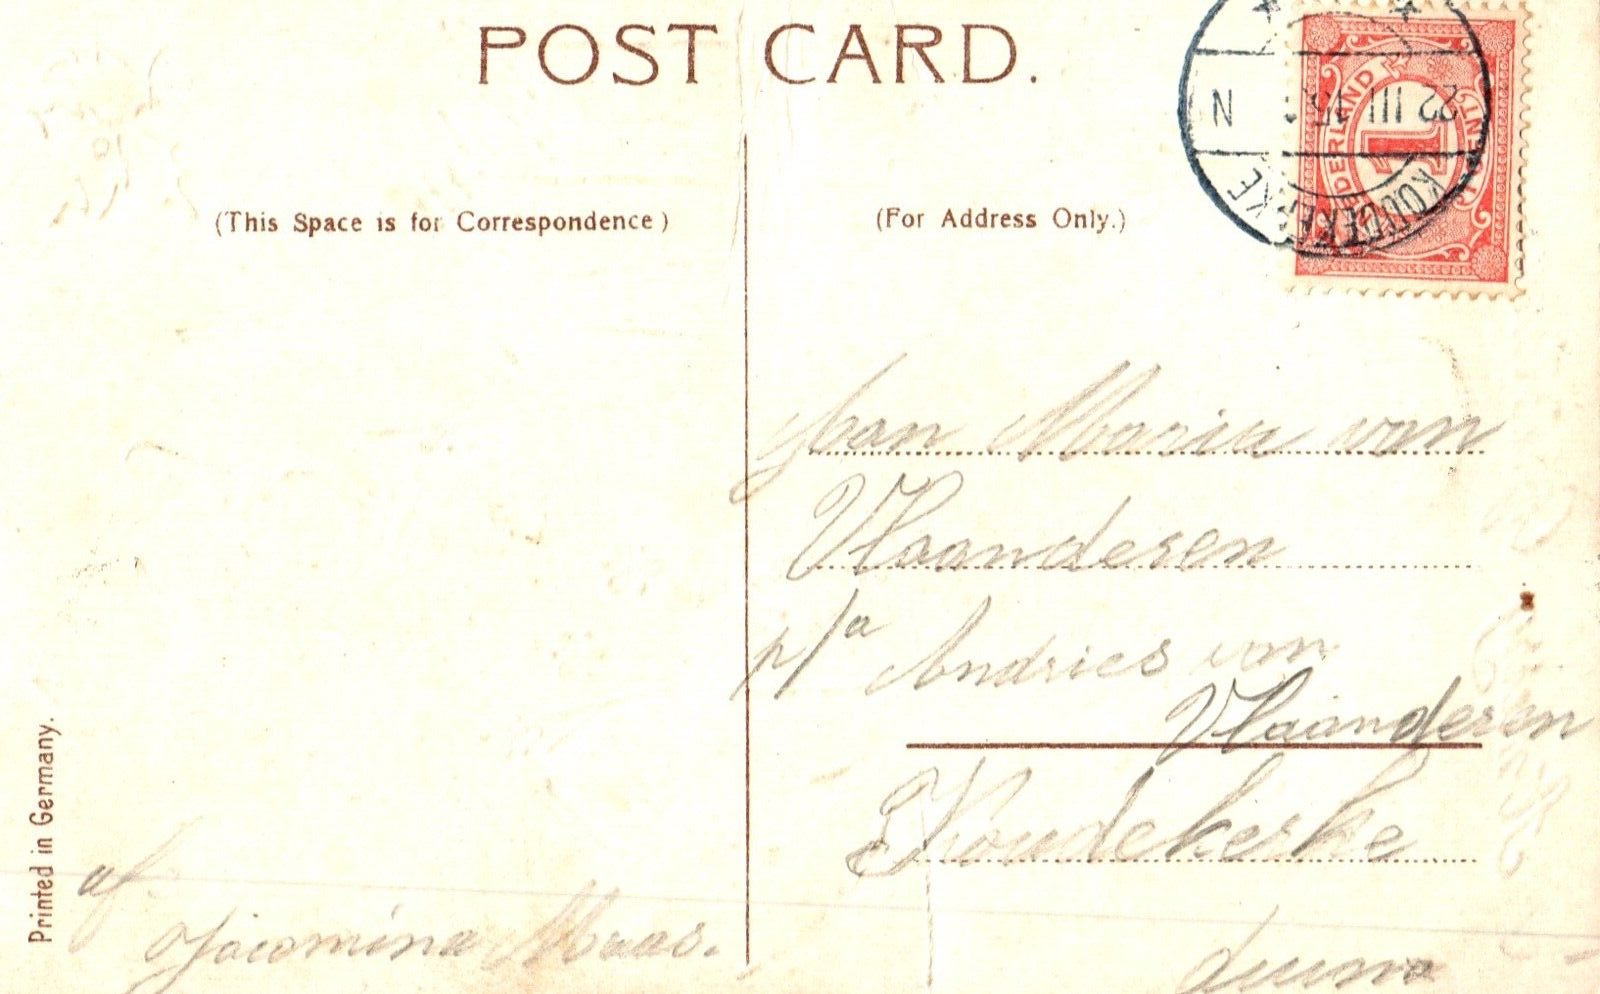 POST CARD.
(This Space is for Correspondence)
(For Address Only.)
NEDERLAND
1
CENT
22 III 15
N
KOUDEKERKE
Aan Maria van
Vlaanderen
p/a Andries van
Vlaanderen
Koudekerke
af
Jacomina Maas.
Printed in Germany.